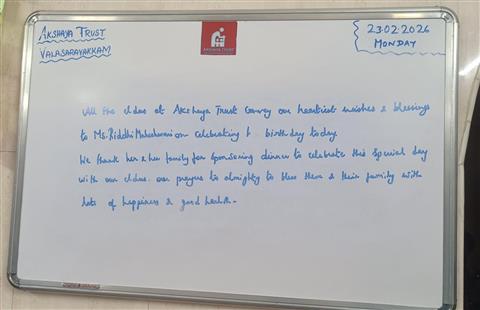 AKSHAYA TRUST
VALASARAVAKKAM
AKSHAYA TRUST
23.02.2026
MONDAY
All the elders at Akshaya Trust Convey our heartiest wishes & blessings
to Ms. Riddhi Maheshwari on celebrating birthday today.
We thank her & her family for sponsering dinner to celebrate this special day
with our elders. our prayers to almighty to bless them & their family with
lots of happiness & good health.